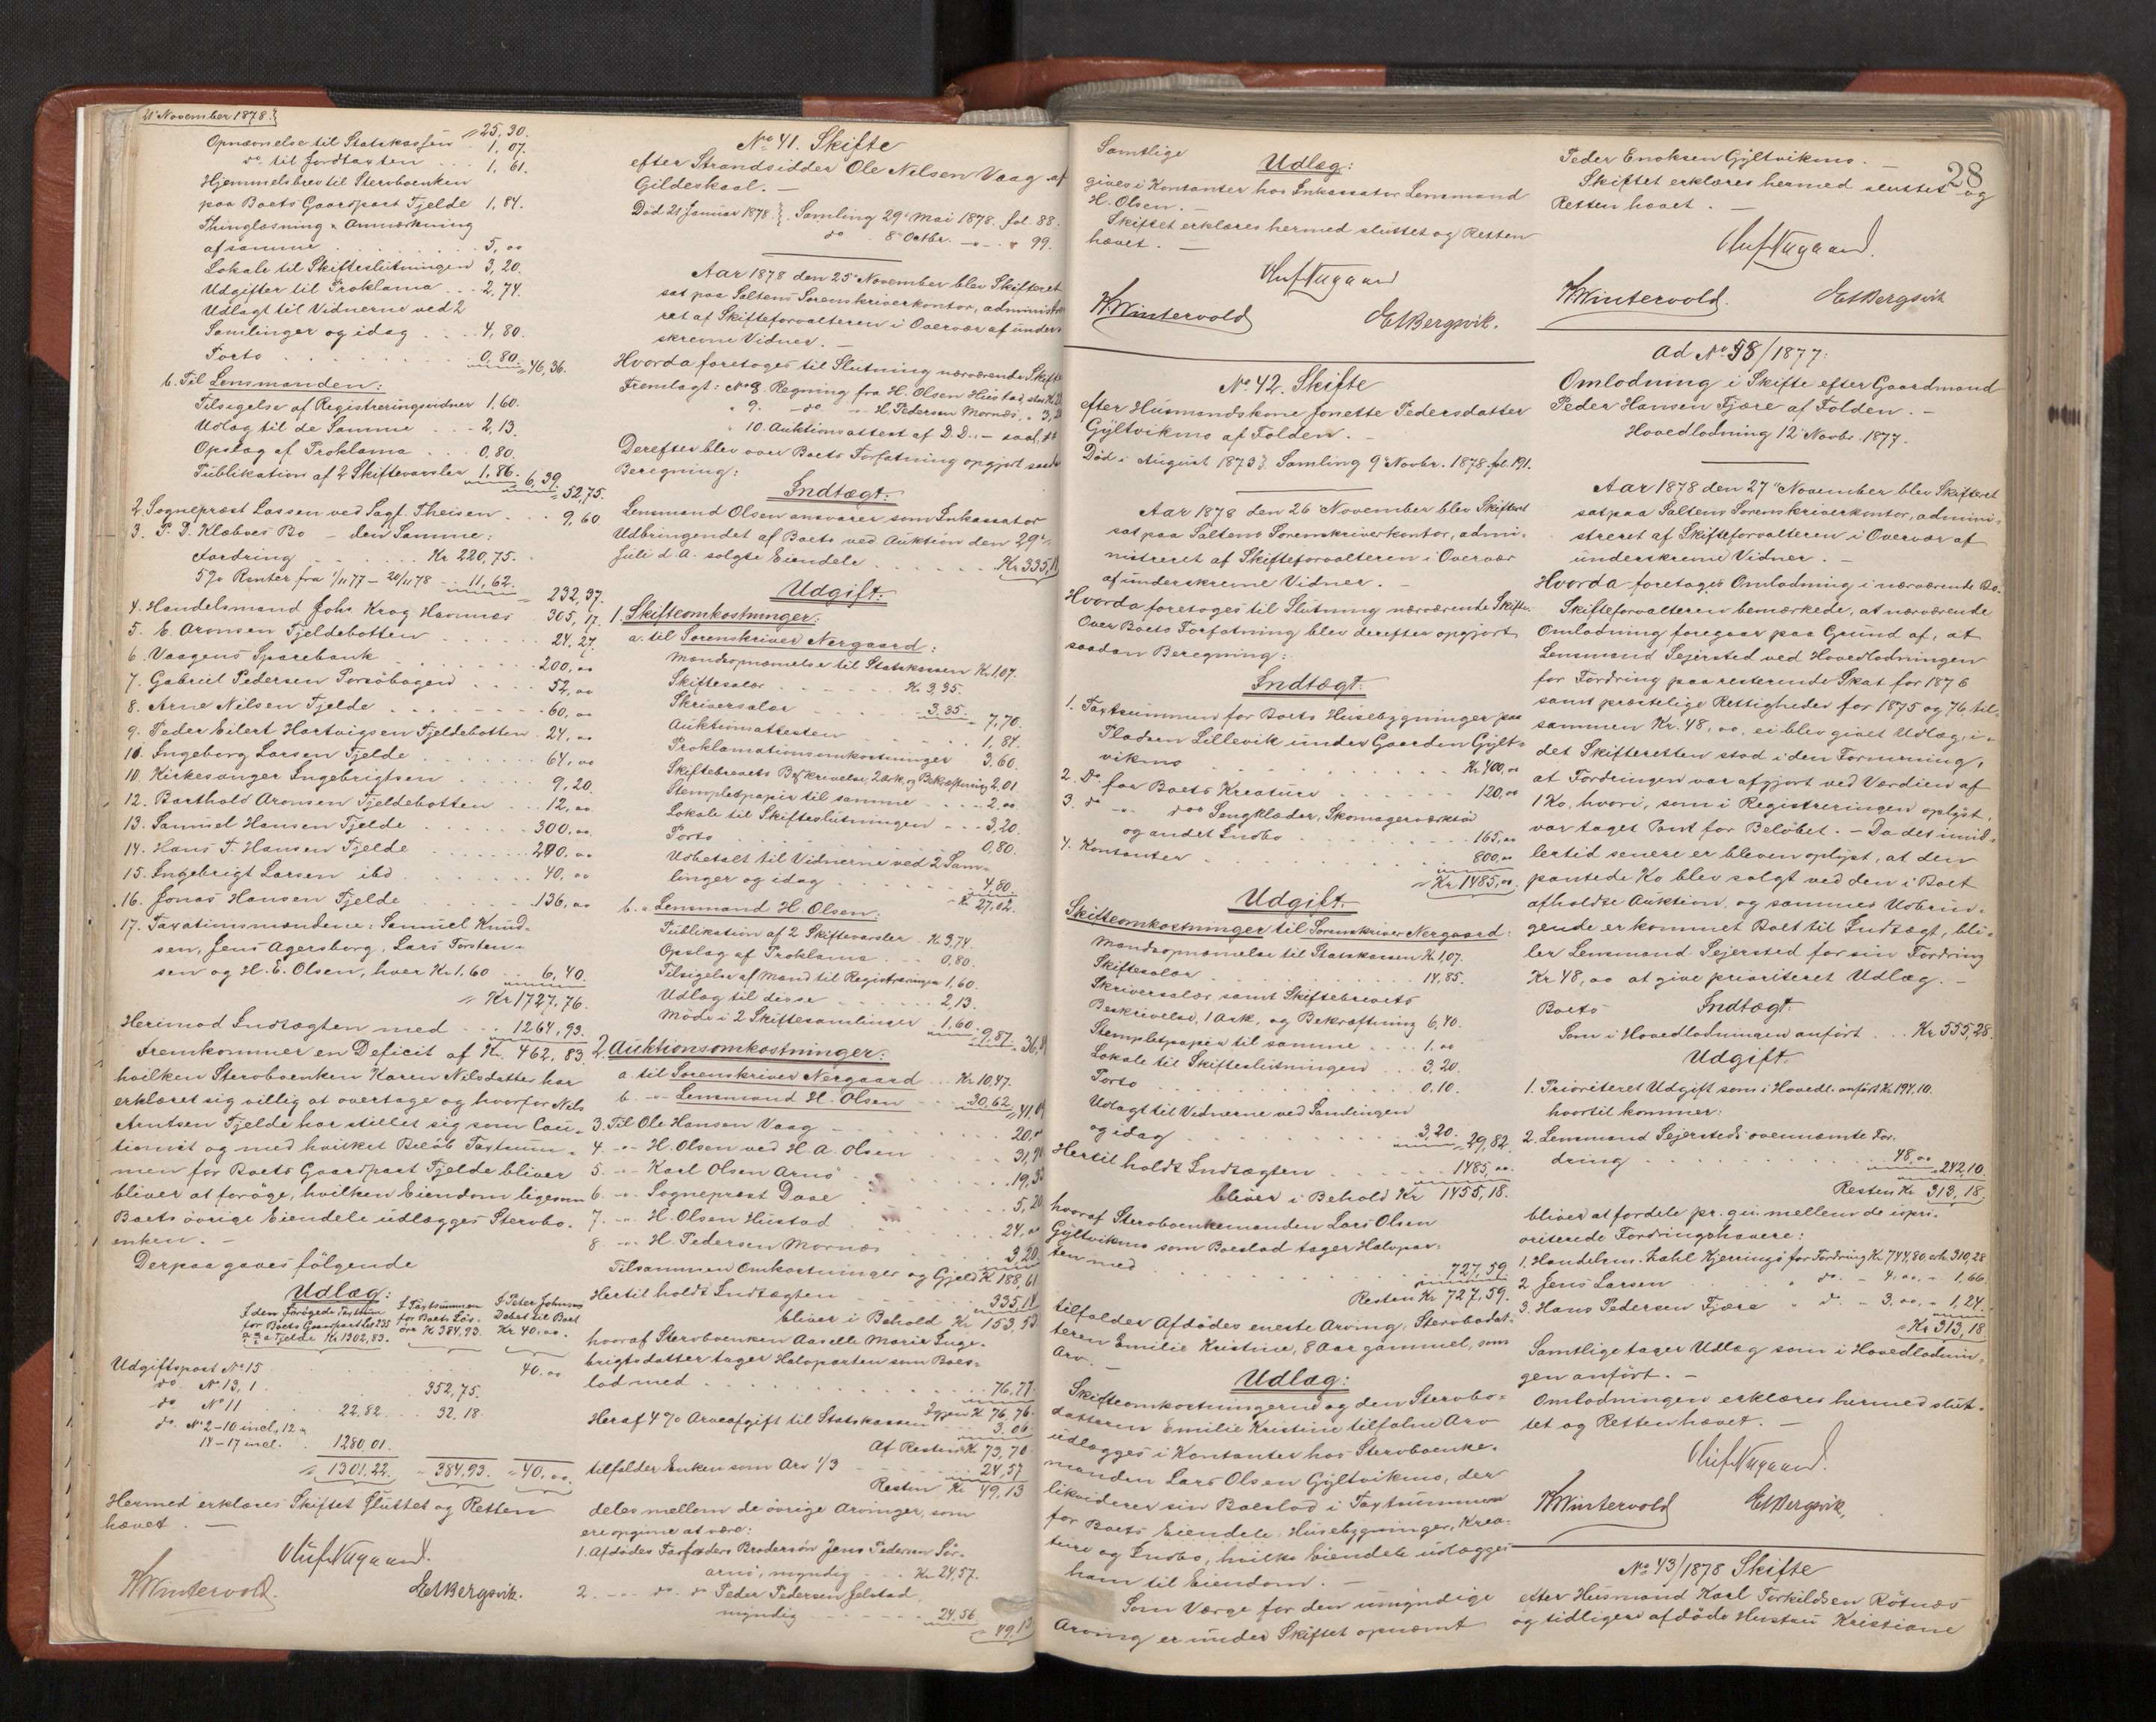 21 November 1878.
25,30.
Opnævnelse til Statskassen 1,07.
do. til Jordtaxten . . . 1,61.
Hjemmelsbrev til Stervboenken
paa Boets Gaardpart Fjelde 1,84.
Thinglæsning & Anmærkning
af samme . . . 5,00
Lokale til Skifteslutningen 3,20.
Udgifter til Proklama . . 2,74.
Udlagt til Vidnerne ved 2
Samlinger og idag . . . 4,80.
Porto . . . 0,80. 46,36.
b. Til Lensmanden:
Tilsigelse af Registreringsvidner 1,60.
Udlag til de Samme . . 2,13.
Opslag af Proklama . . 0,80.
Publikation af 2 Skiftevarsler 1,86. 6,39.
52,75.
2. Sogneprest Lassen ved Sagf. Theisen . . 9,60
3. P. D. Klæboes Bo - den Samme:
Fordring . . . Kr 220,75.
5% Renter fra 1/11 77 - 20/11 78 . . 11,62.
232,37.
4. Handelsmand Johs. Krog Havnnes 305,17.
5. E. Aronsen Fjeldebotten . . . 24,27.
6. Vaagens Sparebank . . . 200,00
7. Gabriel Pedersen Porsöbogen . . . 52,00
8. Arne Nilsen Fjelde . . . 60,00
9. Peder Eilert Hartvigsen Fjeldebotten . 24,00
10. Ingeborg Larsen Fjelde . . . 64,00
10. Kirkesanger Ingebrigtsen . . . 9,20.
12. Barthold Aronsen Fjeldebotten . . . 12,00
13. Samuel Hansen Fjelde . . . 300,00.
14. Hans T. Hansen Fjelde . . . 200,00
15. Ingebrigt Larsen ibd. . . . 40,00
16. Jonas Hansen Fjelde . . . 136,00
17. Taxationsmændene: Samuel Knud-
sen, Jens Agersborg, Lars Torsten-
sen og H. E. Olsen, hver Kr 1.60 . . 6,40.
Kr 1727,76.
Herimod Indtægten med . . . 1264,93.
Fremkommer en Deficit af Kr. 462,83.
hvilken Stervboenken Karen Nilsdatter har
erklæret sig villig at overtage og hvorfor Nils
Arntsen Fjelde har stillet sig som Cau-
tionist og med hvilket Beløb Taxtsum-
men for Boets Gaardpart Fjelde bliver
bliver at forøge, hvilken Eiendom ligesom
Boets övrige Eiendele udlægges Stervbo-
enken. -
Derpaa gaves følgende
Udlæg:
I den forøgede Taxtsum for Boets Gaardpart Lb 235 a Fjelde Kr 1302,83.
I Taxtsummen for Boets Løs- øre Kr 384,93.
I Peter Johnsens Debet til Boet Kr. 40,00.
Udgiftspost No 15 . . . 40,00
do. No. 13, 1 . . . 352,75.
do No 11 . . . 22,82 . . 32,18.
do. No 2-10 incl., 12 &
14-17 incl. . 1280,01.
1301,22. 384,93. 40,00
Hermed erklæres Skiftet sluttet og Retten
hævet. -
Oluf Nugaard.
H Wintervold. E A Bergsvik.
No. 41. Skifte
efter Strandsidder Ole Nilsen Vaag af
Gildeskaal. -
Død 21 Januar 1878. Samling 29 Mai 1878. fol. 88.
do. 8 Octbr. - " - " 99.
Aar 1878 den 25 November blev Skifteret
sat paa Saltens Sorenskriverkontor, administre-
ret af Skifteforvalteren i Overvær af under-
skrevne Vidner. -
Hvorda foretoges til Slutning nærværende Skifte
Fremlagt: No 8. Regning fra H. Olsen Hustad, stor Kr 24
" 9. - do - " - H. Pedersen Mornæs . " 3,20
" 10. Auktionsattest af D.D. - saal.
Derefter blev over Boets Forfatning opgjort saadan
Beregning:
Indtægt:
Lensmand Olsen ansvarer som Inkassator
Udbringendet af Boets ved Auktion den 29
Juli d. A. solgte Eiendele . . . Kr 335,14
Udgift:
1. Skifteomkostninger:
a. til Sorenskriver Nergaard:
Mandsopnævnelse til Statskassen Kr 1,07.
Skiftesalær . . . Kr 3,35.
Skriversalær . . . 3,35. 7,70.
Auktionsattesten . . . 1,84.
Proklamationsomkostninger 3,60.
Skiftebrevets Beskrivelse, 2 ark, og Bekræftning 2,01
Stempletpapir til samme . . . 2,00.
Lokale til Skifteslutningen . . . 3,20.
Porto . . . 0,80.
Udbetalt til Vidnerne ved 2 Sam-
linger og idag . . . 4,80.
Kr 27,02.
b. Lensmand H. Olsen:
Publikation af 2 Skiftevarsler . Kr 3,74.
Opslag af Proklama . . . 0,80.
Tilsigelse af Mænd til Registreringen 1,60.
Udlæg til disse . . . 2,13.
Møde i 2 Skiftesamlinger 1,60. 9,87. 36,89
2. Auktionsomkostninger:
a. til Sorenskriver Nergaard . . Kr 10,47.
b. - " - Lensmand H. Olsen . . . 30,62. 41,09
3. Til Ole Hansen Vaag . . . 20,00
4. - " - H. Olsen ved H. A. Olsen . . . 31,90
5. - " - Karl Olsen Arnö . . . 19,33
6. - " - Sogneprest Daae . . . 5,20
7. - " - H. Olsen Hustad . . . 24,00
8. - " - H. Pedersen Mornæs . . . 3,20.
Tilsammen Omkostninger og Gjeld Kr 188,61
Hertil holdt Indtægten . . . 335,14
bliver i Behold Kr 153,53
hvoraf Stervboenken Aaselle Marie Inge-
brigtsdatter tager Halvparten som Boes-
lod med . . . 76,77.
Igjen Kr 76,76.
Heraf 4% Arveafgift til Statskassen 3.06.
Af Resten Kr 73,70.
tilfalder Enken som Arv 1/3 . . . 24,57
Resten Kr 49,13
deles mellem de øvrige Arvinger, som
ere opgivne at være:
1. Afdødes Farfaders Brodersön Jens Pedersen Sör-
arnö, myndig . . . Kr 24,57.
2. - " - do. do Peder Pedersen Jelstad,
myndig . . . 24,56.
49,13
28
Samtlige
Udlæg:
gives i Kontanter hos Inkassator Lensmand
H. Olsen. -
Skiftet erklæres hermed sluttet og Retten
hævet. -
Oluf Nugaard
H Wintervold E A Bergsvik.
No. 42. Skifte
efter Husmandskone Jonette Pedersdatter
Gyltvikmo af Folden. -
Død i August 1873. Samling 9 Novbr. 1878. fol. 191.
Aar 1878 den 26 November blev Skifteret
sat paa Saltens Sorenskriverkontor, admi-
nistreret af Skifteforvalteren i Overvær
af underskrevne Vidner. -
Hvorda foretoges til Slutning nærværende Skifte.
Over Boets Forfatning blev derefter opgjort
saadan Beregning:
Indtægt:
1. Taxtsummen for Boets Husebygninger paa
Pladsen Lillevik under Gaarden Gylt-
vikmo . . . Kr 400,00
2. Do. for Boets Kreaturer . . . 120,00
3. do - " - do Sengklæder, Skomagerværktøi
og andet Indbo . . . 165,00
4. Kontanter . . . 800,00
Kr 1485,00.
Udgift:
Skifteomkostninger til Sorenskriver Nergaard:
Mandsopnævnelse til Statskassen Kr 1,07.
Skiftesalær . . . 14,85.
Skriversalær, samt Skiftebrevets
Beskrivelse, 1 Ark, og Bekræftning 6,40.
Stempletpapir til samme . . . 1,00
Lokale til Skifteslutningen . . . 3,20.
Porto . . . 0,10.
Udlagt til Vidnerne ved Samlingen
og idag . . . 3,20. 29,82.
Hertil holdt Indtægten . . . 1485,00.
bliver i Behold Kr 1455,18.
hvoraf Stervboenkemanden Lars Olsen
Gyltvikmo som Boeslod tager Halvpar-
ten med . . . 727,59.
Resten Kr 727,59.
tilfalder Afdødes eneste Arving, Stervbodat-
teren Emilie Kristine, 8 Aar gammel, som
Arv. -
Udlæg:
Skifteomkostningerne og den Stervbo-
datteren Emilie Kristine tilfaldne Arv
udlægges i Kontanter hos Stervboenke-
manden Lars Olsen Gyltvikmo, der
likviderer sin Boeslod i Taxtsummen
for Boets Eiendele: Husebygninger, Krea-
turer og Indbo, hvilke Eiendele udlægges
ham til Eiendom. -
Som Værge for den umyndige
Arving er under Skiftet opnævnt
Peder Enoksen Gyltvikmo. -
Skiftet erklæres hermed sluttet og
Retten hævet. -
Oluf Nugaard.
H Wintervold. E A Bergsvik
ad No 58/1877:
Omlodning i Skifte efter Gaardmand
Peder Hansen Fjære af Folden. -
Hovedlodning 12 Novbr. 1877.
Aar 1878 den 27 November blev Skifteret
sat paa Saltens Sorenskriverkontor, admini-
streret af Skifteforvalteren i Overvær af
underskrevne Vidner. -
Hvorda foretages Omlodning i nærværende Bo.
Skifteforvalteren bemærkede, at nærværende
Omlodning foregaar paa Grund af, at
Lensmand Sejersted ved Hovedlodningen
for Fordring paa resterende Skat for 1876
samt præstelige Rettigheder for 1875 og 76, til-
sammen Kr. 48,00, ei blev givet Udlæg, i-
det Skifteretten stod i den Formening,
at Fordringen var afgjort ved Værdien af
1 Ko, hvori, som i Registreringen oplyst,
var taget Pant for Beløbet. - Da det imid-
lertid senere er bleven oplyst, at den
pantede Ko blev solgt ved den i Boet
afholdte Auktion, og sammes Udbrin-
gende er kommet Boet til Indtægt, bli-
ver Lensmand Sejersted for sin Fordring
Kr 48,00 at give prioriteret Udlæg. -
Boets Indtægt:
Som i Hovedlodningen anført . . Kr. 555,28.
Udgift:
1. Prioriteret Udgift som i Hovedl. anført Kr 194,10.
hvortil kommer:
2. Lensmand Sejersteds ovennævnte For-
dring . . . 48,00 242,10.
Resten Kr 313,18.
bliver at fordele pr. qvi. mellem de upri-
oriterede Fordringshavere:
1. Handelsm. Zahl Kjerringö for Fordring Kr 744,80 erh. 310,28
2. Jens Larsen " do. - 4,00 - 1,66.
3. Hans Pedersen Fjære " d. - 3,00 - 1,24.
Kr 313,18
Samtlige tager Udlæg som i Hovedlodnin-
gen anført. -
Omlodningen erklæres hermed slut-
tet og Retten hævet. -
Oluf Nugaard.
H Wintervold E A Bergsvik,
No 43/1878 Skifte
efter Husmand Karl Torkildsen Rötnæs
og tidligere afdöde Hustru Kristiane